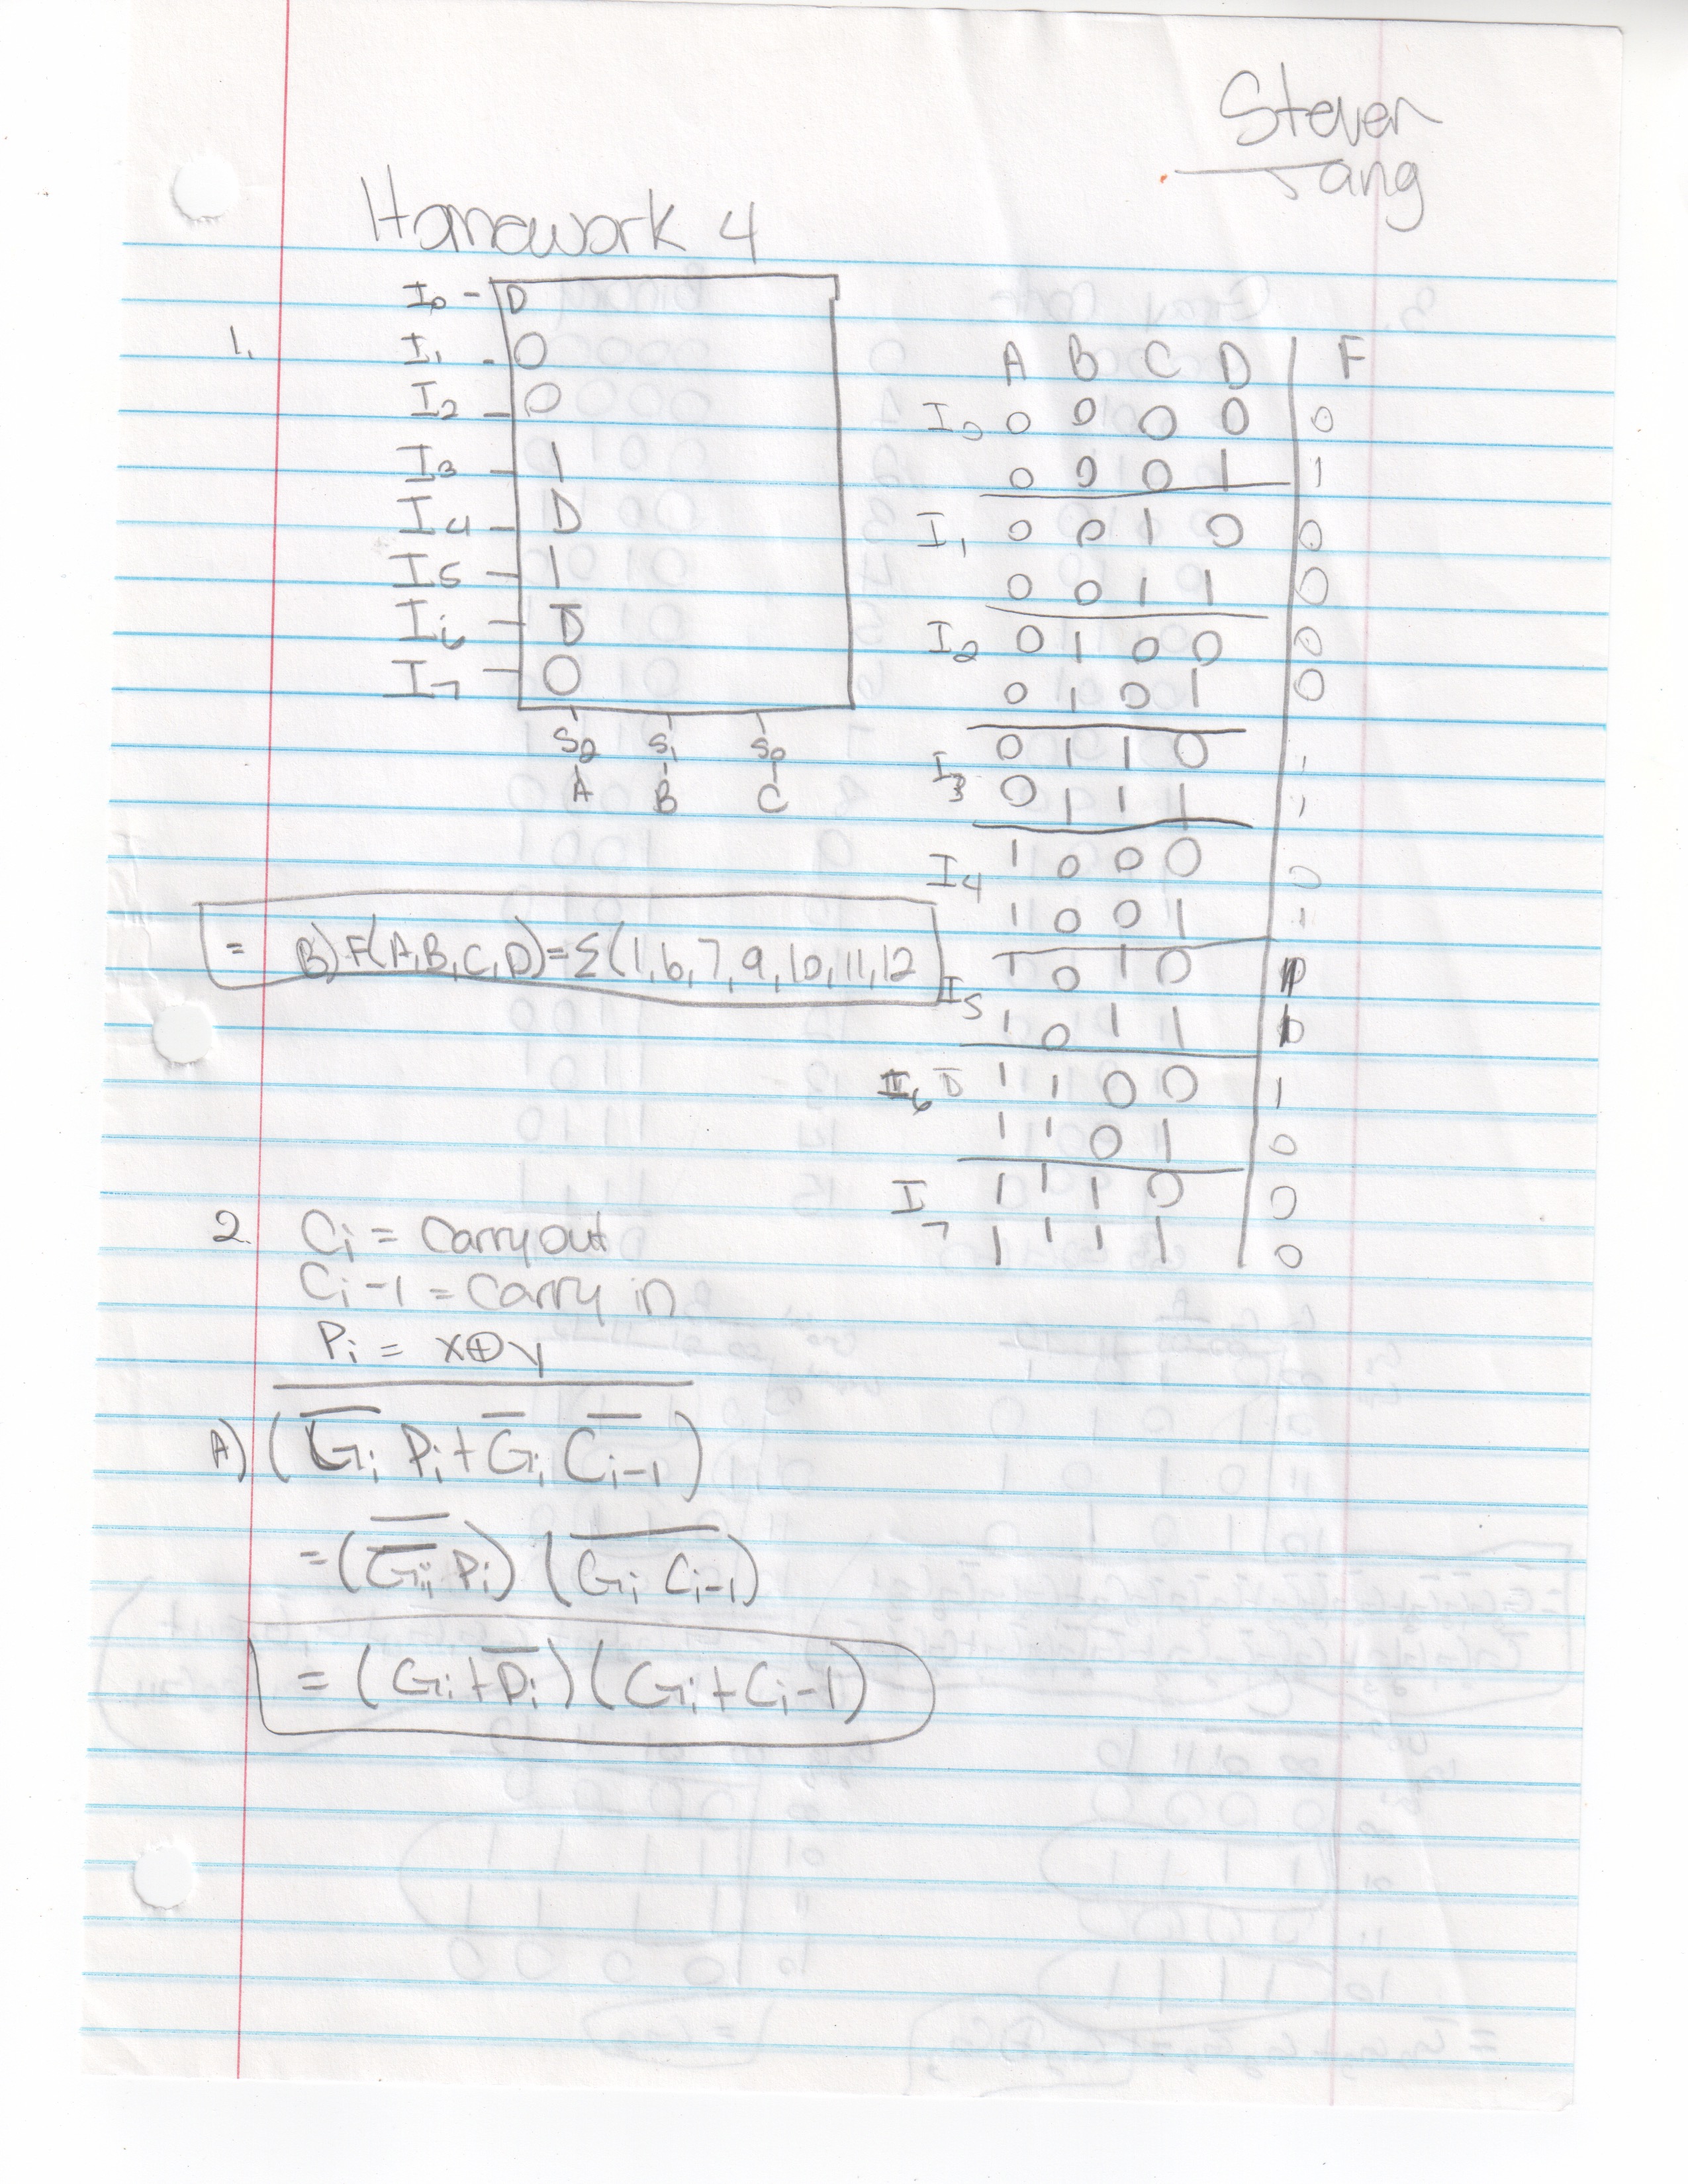 Steven
Jang
Homework 4
1.
I₀ - D
I₁ - 0
I₂ - 0
I₃ - 1
I₄ - D
I₅ - 1
I₆ - D̅
I₇ - 0
S₂ S₁ S₀
A B C
A B C D | F
I₀ 0 0 0 0 | 0
0 0 0 1 | 1
I₁ 0 0 1 0 | 0
0 0 1 1 | 0
I₂ 0 1 0 0 | 0
0 1 0 1 | 0
I₃ 0 1 1 0 | 1
0 1 1 1 | 1
I₄ 1 0 0 0 | 0
1 0 0 1 | 1
I₅ 1 0 1 0 | 1
1 0 1 1 | 1
I₆ D̅ 1 1 0 0 | 1
1 1 0 1 | 0
I₇ 1 1 1 0 | 0
1 1 1 1 | 0
= B) F(A,B,C,D)=Σ(1,6,7,9,10,11,12
2. Ci = Carry out
Ci-1 = Carry in
Pi = x⊕y
A) (G̅i Pi + G̅i C̅i-1)
= (G̅i Pi) (Gi Ci-1)
= (Gi + P̅i) (Gi + Ci-1)